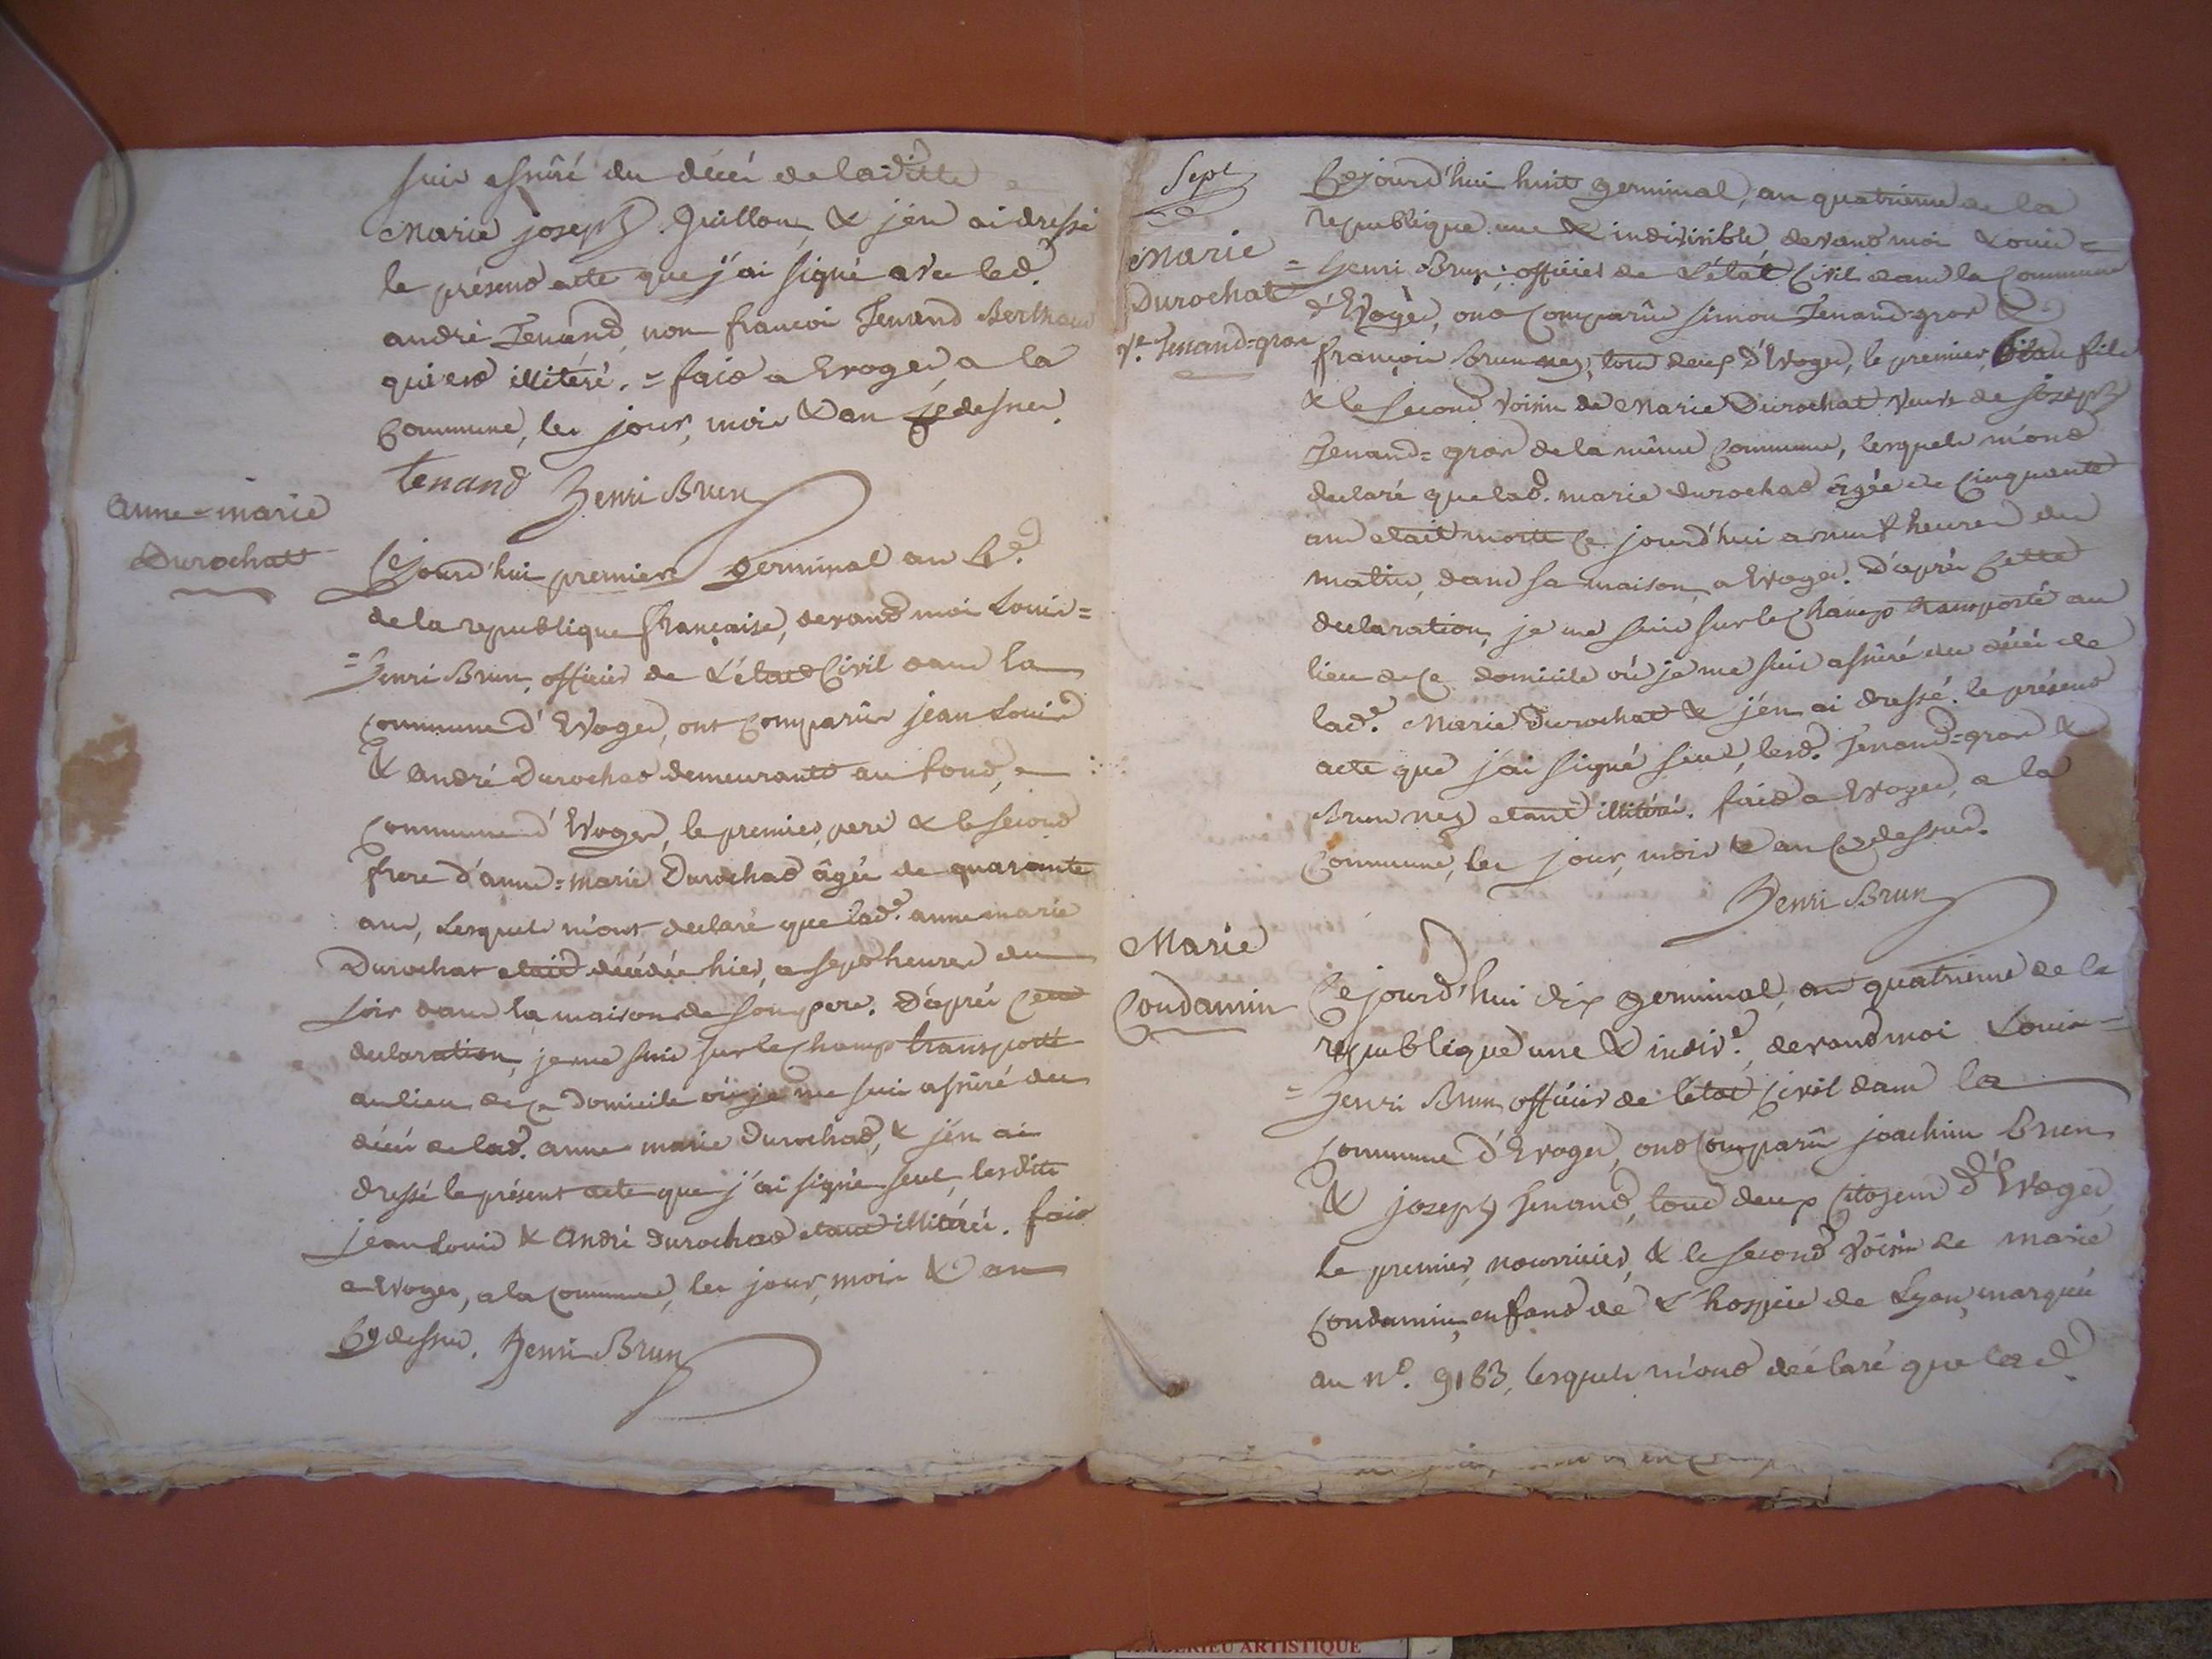 suis assûré du décés de laditte
Marie joseph Guillon, & j'en ai dressé
le présent acte que j'ai signé avec led.
andré Tenand, non francois Tenand Berthau
qui est illitéré. = fait a Evoges a la
Commune, les jour, mois & an cydessus.
tenand Henri Brun
Anne=marie
Durochatt
Cejourd'hui premier germinal an 4e.
de la republique française, devant moi Louis=
=henri Brun, officier de L'état Civil dans la
commune d'Evoges, ont comparûs jean Louis
& andré Durochat demeurants au fond,
commune d'Evoges, le premier, pere & le second
frere d'anne=marie Durochat âgée de quarante
ans, Lesquels m'ont declaré que lade. anne marie
Durochat etait décédée hier, a sept heures du
soir dans la maison de son pere. D'aprés cette
declaration, je me suis sur le champ transporté
au lieu de ce domicile où je me suis assûré du
décés de lad. anne marie Durochat, & j'en ai
dressé le présent acte que j'ai signé seul, lesdits
jean Louis & André Durochat etant illitérés. fait
a Evoges, a la commune, les jour, mois & an
Cydessus. Henri Brun
Sept
Marie
Durochat
ve. Tenand=gros
Cejourd'hui huit germinal, an quatrieme de la
republique une & indivisible devant moi Louis=
=henri Brun, officier de L'état Civil dans la commune
d'Evoges, ont comparûs simon Tenand=gros &
françois Brun ney, tous deux d'Evoges, le premier, fils
& le second voisin de Marie Durochat veuve de joseph
Tenand=gros de la même commune, lesquels m'ont
declaré que lad. marie durochat âgée de cinquante
ans etait morte ce jourd'hui a neuf heures du
matin, dans sa maison, a Evoges. D'aprés cette
declaration, je me suis sur le champ transporté au
lieu de ce domicile où je me suis assûré du décés de
lade. Marie Durochat & j'en ai dressé le présent
acte que j'ai signé seul, lesd. Tenand=gros &
Brun ney etant illitérés. fait a Evoges, a la
Commune, les jour, mois & an cydessus.
Henri Brun
Marie
Condamin
Cejourd'hui dix germinal, an quatrieme de la
republique une & indive. devant moi Louis=
=henri Brun officier de l'état Civil dans la
commune d'Evoges, ont comparû joachim Brun
& joseph Tenand, tous deux citoyens d'Evoges,
le premier, nourricier, & le second voisin de marie
condamin, enfant de L'hospice de Lyon, marquée
au no. 9163, lesquels m'ont déclaré que lad
ARTISTIQUE